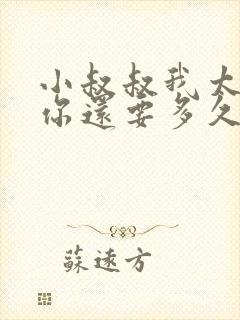 小叔叔我太
你還要多久
蘇遠方